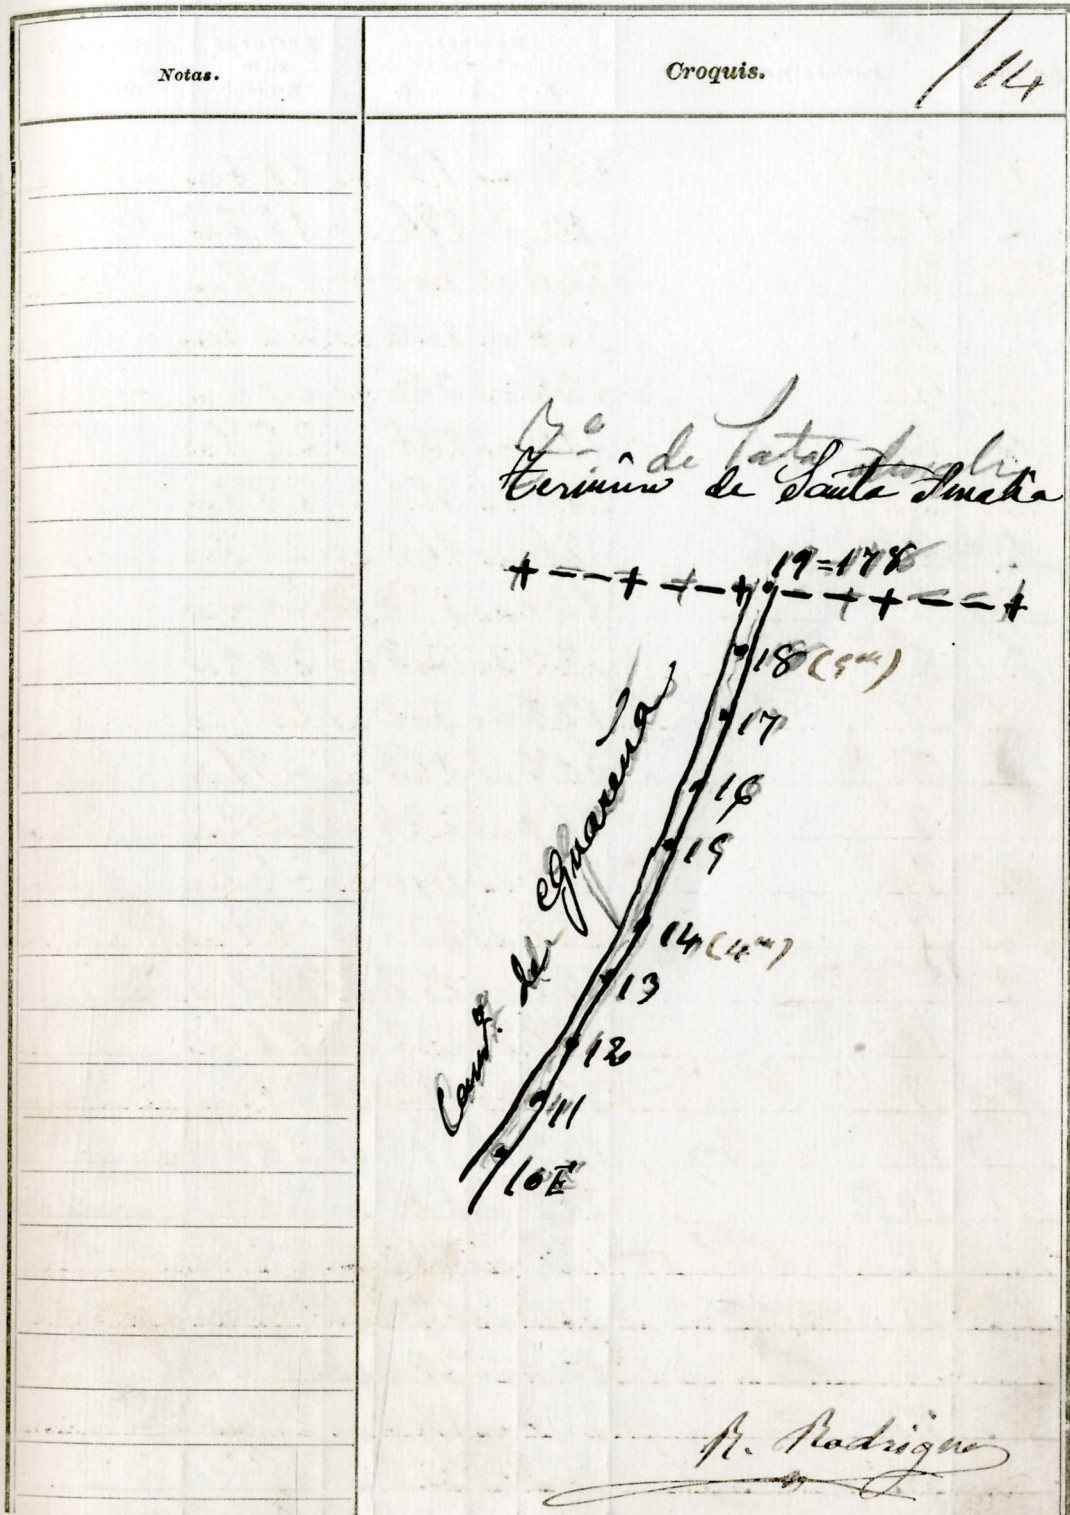 Notas.
Croquis.
/14
Tº de Sata Amalia
Termino de Santa Amalia
19=178
18 (5m)
17
16
15
14 (4m)
13
12
11
10E
Camº de Guareña
R. Rodriguez